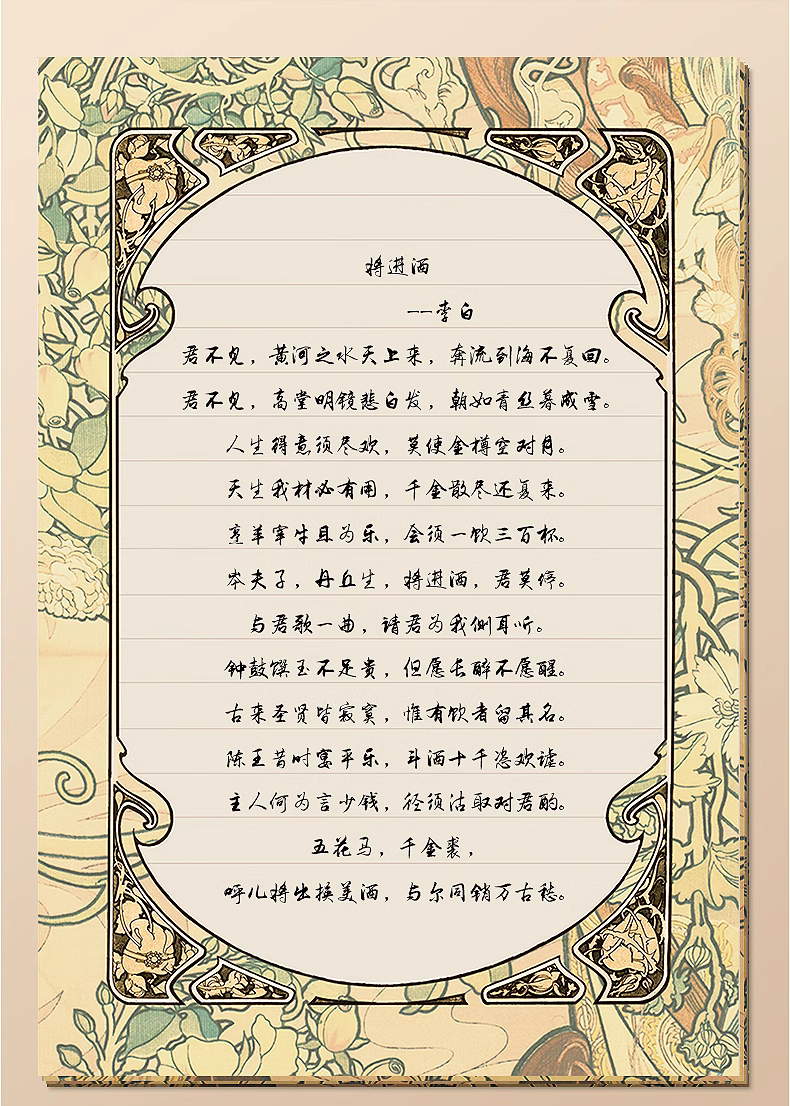 将进酒
--李白
君不见，黄河之水天上来，奔流到海不复回。
君不见，高堂明镜悲白发，朝如青丝暮成雪。
人生得意须尽欢，莫使金樽空对月。
天生我材必有用，千金散尽还复来。
烹羊宰牛且为乐，会须一饮三百杯。
岑夫子，丹丘生，将进酒，君莫停。
与君歌一曲，请君为我侧耳听。
钟鼓馔玉不足贵，但愿长醉不愿醒。
古来圣贤皆寂寞，惟有饮者留其名。
陈王昔时宴平乐，斗酒十千恣欢谑。
主人何为言少钱，径须沽取对君酌。
五花马，千金裘，
呼儿将出换美酒，与尔同销万古愁。